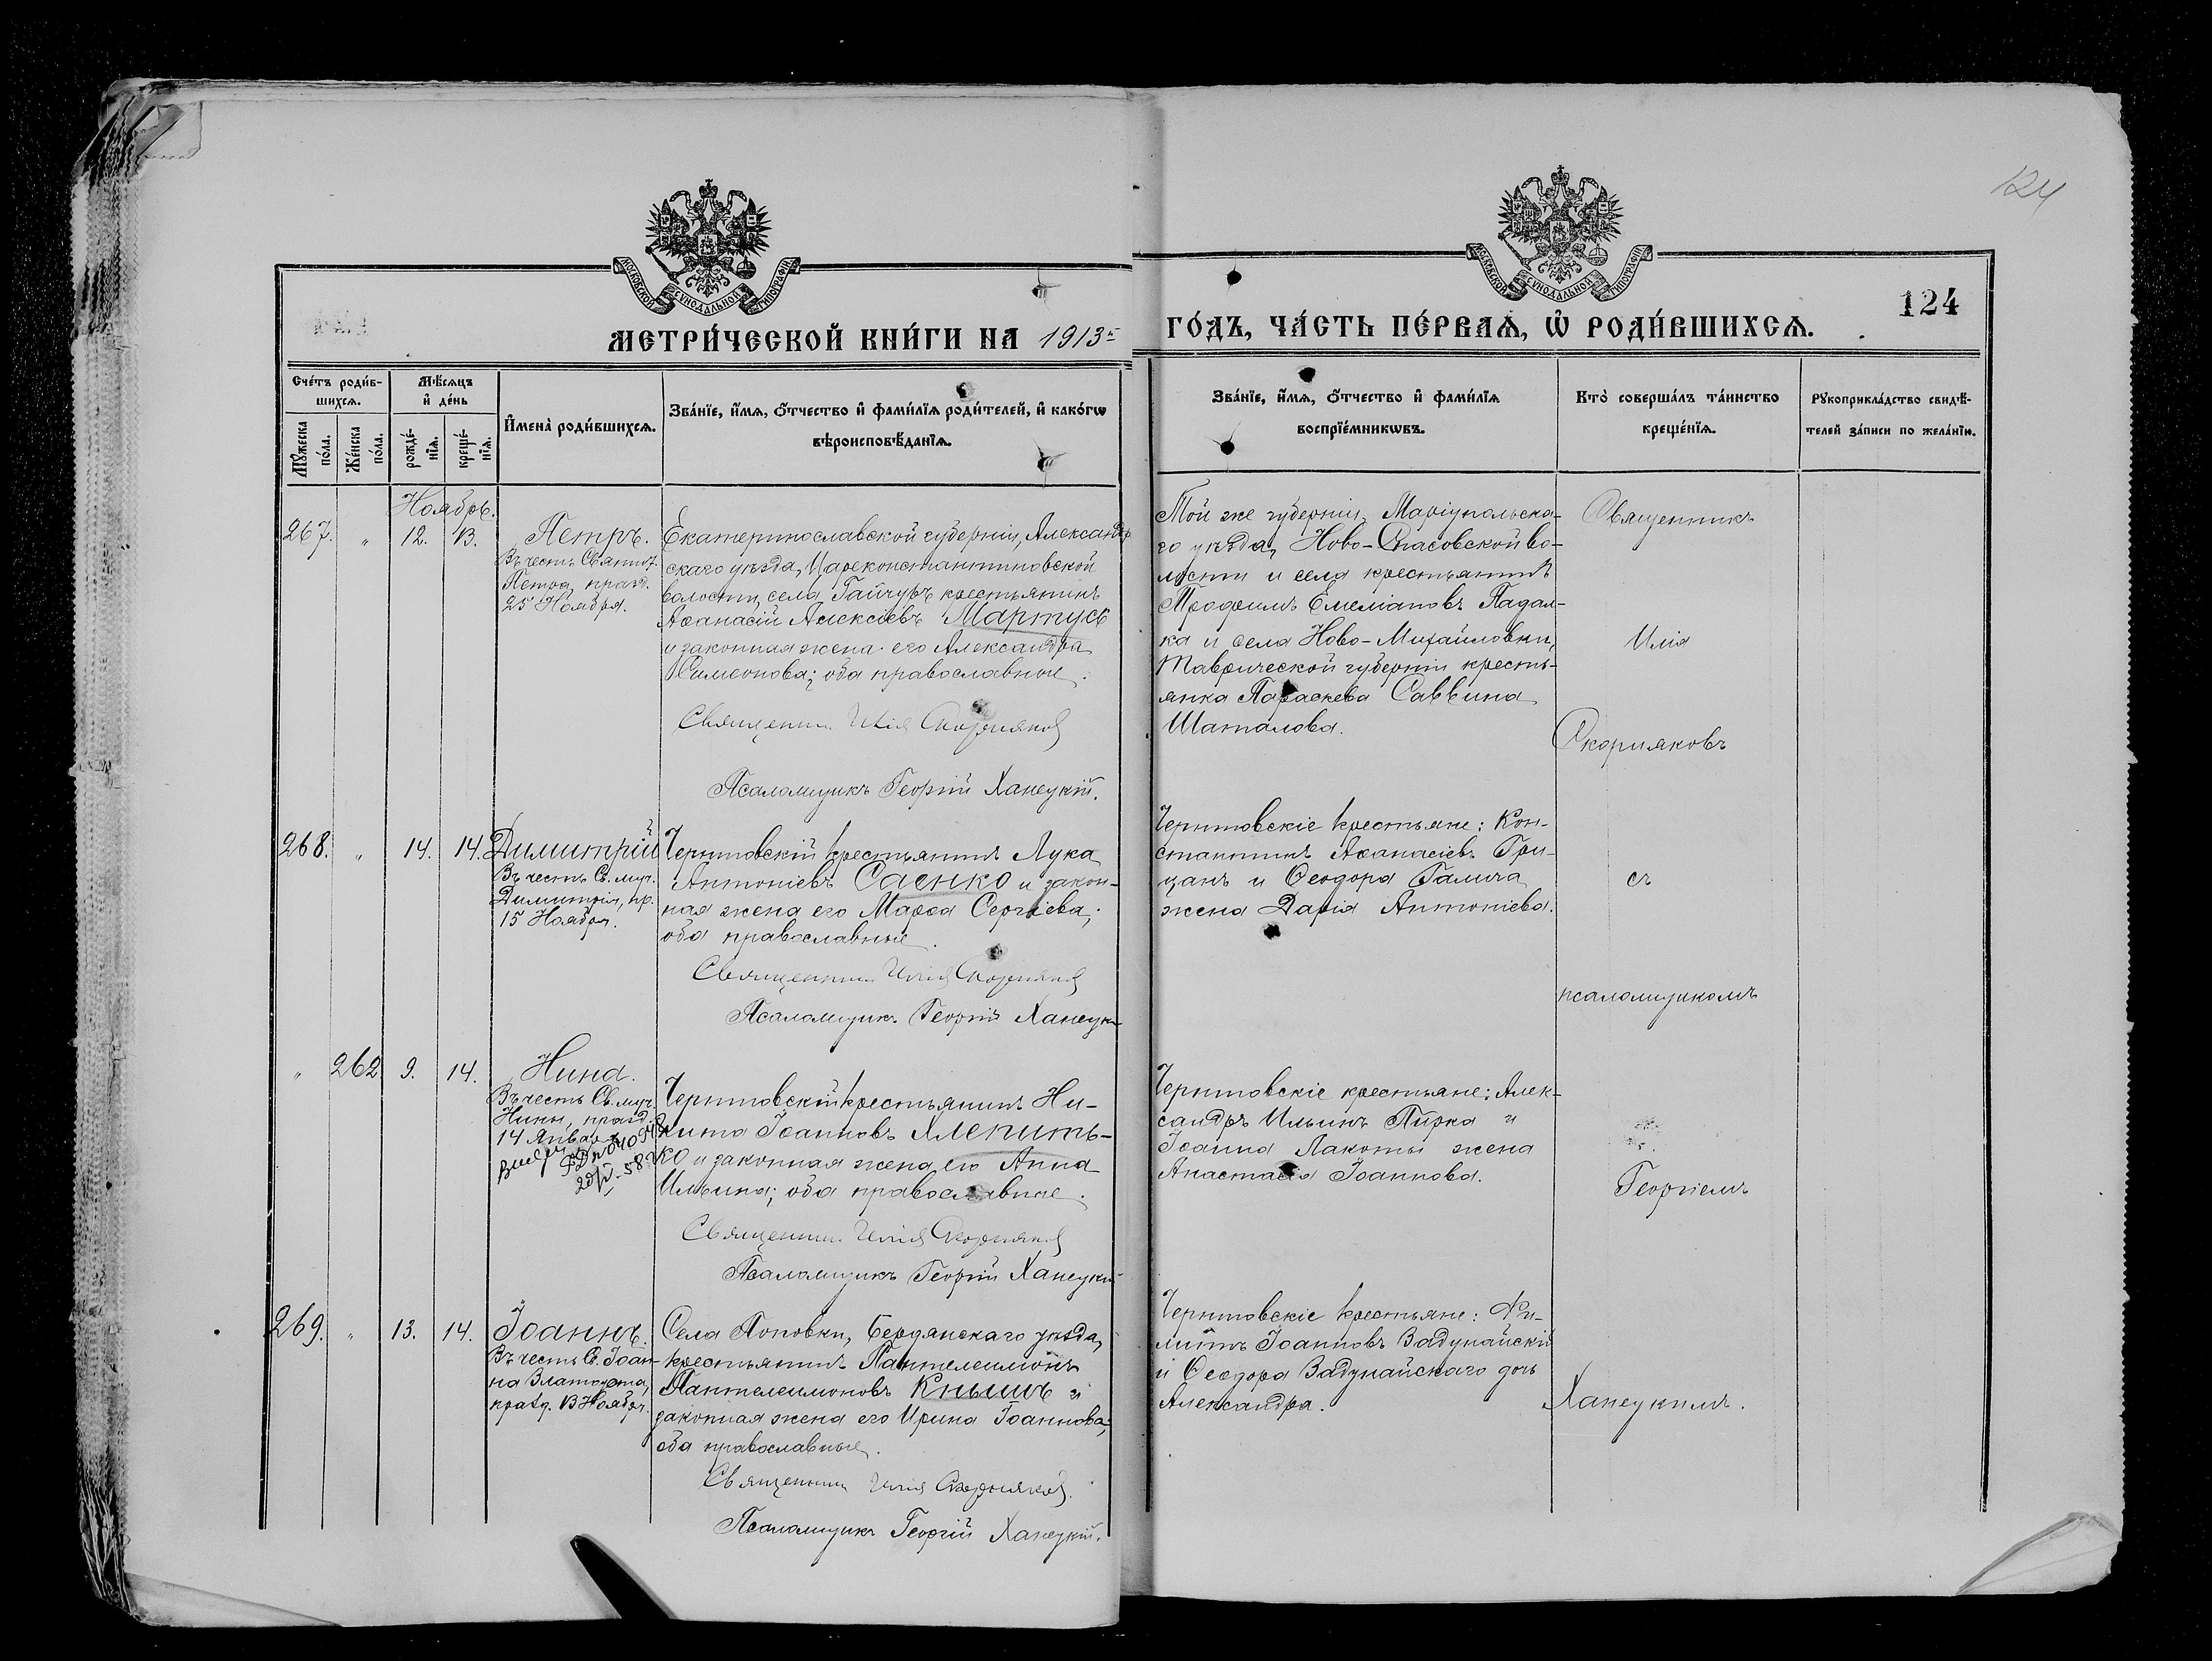 124
МОСКОВСКОЙ СУНОДАЛЬНОЙ ТИПОГРАФІИ
МОСКОВСКОЙ СУНОДАЛЬНОЙ ТИПОГРАФІИ
124
МЕТРИ́ЧЕСКОЙ КНИ́ГИ НА 1913
ГО́ДЪ, ЧА́СТЬ ПЕ́РВАѦ, Ѡ҆ РОДИ́ВШИХСѦ.
Сче́тъ роди́в-
шихсѧ.
Мꙋ́жеска по́ла.
Же́нска по́ла.
Мѣ́сѧцъ
и҆ де́нь
рожде́-
нїѧ.
креще́-
нїѧ.
И҆мена̀ роди́вшихсѧ.
Зва́нїе, и҆́мѧ, ѻ҆́тчество и҆ фами́лїѧ роди́телей, и҆ како́гѡ
вѣроисповѣ́данїѧ.
Зва́нїе, и҆́мѧ, ѻ҆́тчество и҆ фами́лїѧ
воспрїе́мникѡвъ.
Кто̀ соверша́лъ та́инство
креще́нїѧ.
Рꙋкоприкла́дство свидѣ́-
телей за́писи по жела́нїю.
Ноябрь.
267.
"
12.
13.
Петръ.
Въ честь Святого
Петра, празд.
25 Ноября.
Екатеринославской губерніи, Александров
скаго уѣзда, Цареконстантиновской
волости, села Гайчуръ крестьянинъ
Аѳанасій Алексіевъ Мартусь
и законная жена его Александра
Симеонова; оба православные.
Священникъ Илія Скорняковъ
Псаломщикъ Георгій Ханецкій.
Той же губерніи, Маріупольска-
го уѣзда, Ново-Спасовской во-
лости и села крестьянинъ
Трофимъ Емеліановъ Падал-
ка и села Ново-Михайловки,
Таврической губерніи кресть-
янка Параскева Саввина
Шаталова.
Священникъ
Илія
Скорняковъ
съ
псаломщикомъ
Георгіемъ
Ханецкимъ.
268.
"
14.
14.
Димитрій
Въ честь Св. муч.
Димитрія, пр.
15 Ноября.
Черниговскій крестьянинъ Лука
Антоніевъ Саенко и закон-
ная жена его Марѳа Сергіева;
оба православные.
Священникъ Илія Скорняковъ
Псаломщикъ Георгій Ханецкій
Черниговскіе крестьяне: Кон-
стантинъ Аѳанасіевъ Гри-
цанъ и Ѳеодора Галича
жена Дарія Антоніева.
"
262
9.
14.
Нина.
Въ честь Св. муч.
Нины, празд.
14 Января
Черниговскій крестьянинъ Ни-
кита Іоанновъ Хлепить-
ко и законная жена его Анна
Ильина; оба православные.
Священникъ Илія Скорняковъ
Псаломщикъ Георгій Ханецкій
Черниговскіе крестьяне: Алек-
сандръ Ильинъ Пирка и
Іоанна Лакоты жена
Анастасія Іоаннова.
269.
"
13.
14.
Іоаннъ.
Въ честь Св. Іоан-
на Златоуста,
празд. 13 Ноября.
Села Поповки, Бердянскаго уѣзда,
крестьянинъ Пантелеимонъ
Пантелеимоновъ Кнышъ и
законная жена его Ирина Іоаннова;
оба православные.
Священникъ Илія Скорняковъ.
Псаломщикъ Георгій Ханецкій.
Черниговскіе крестьяне: Фи-
липпъ Іоанновъ Задунайскій
и Ѳеодора Задунайскаго дочь
Александра.